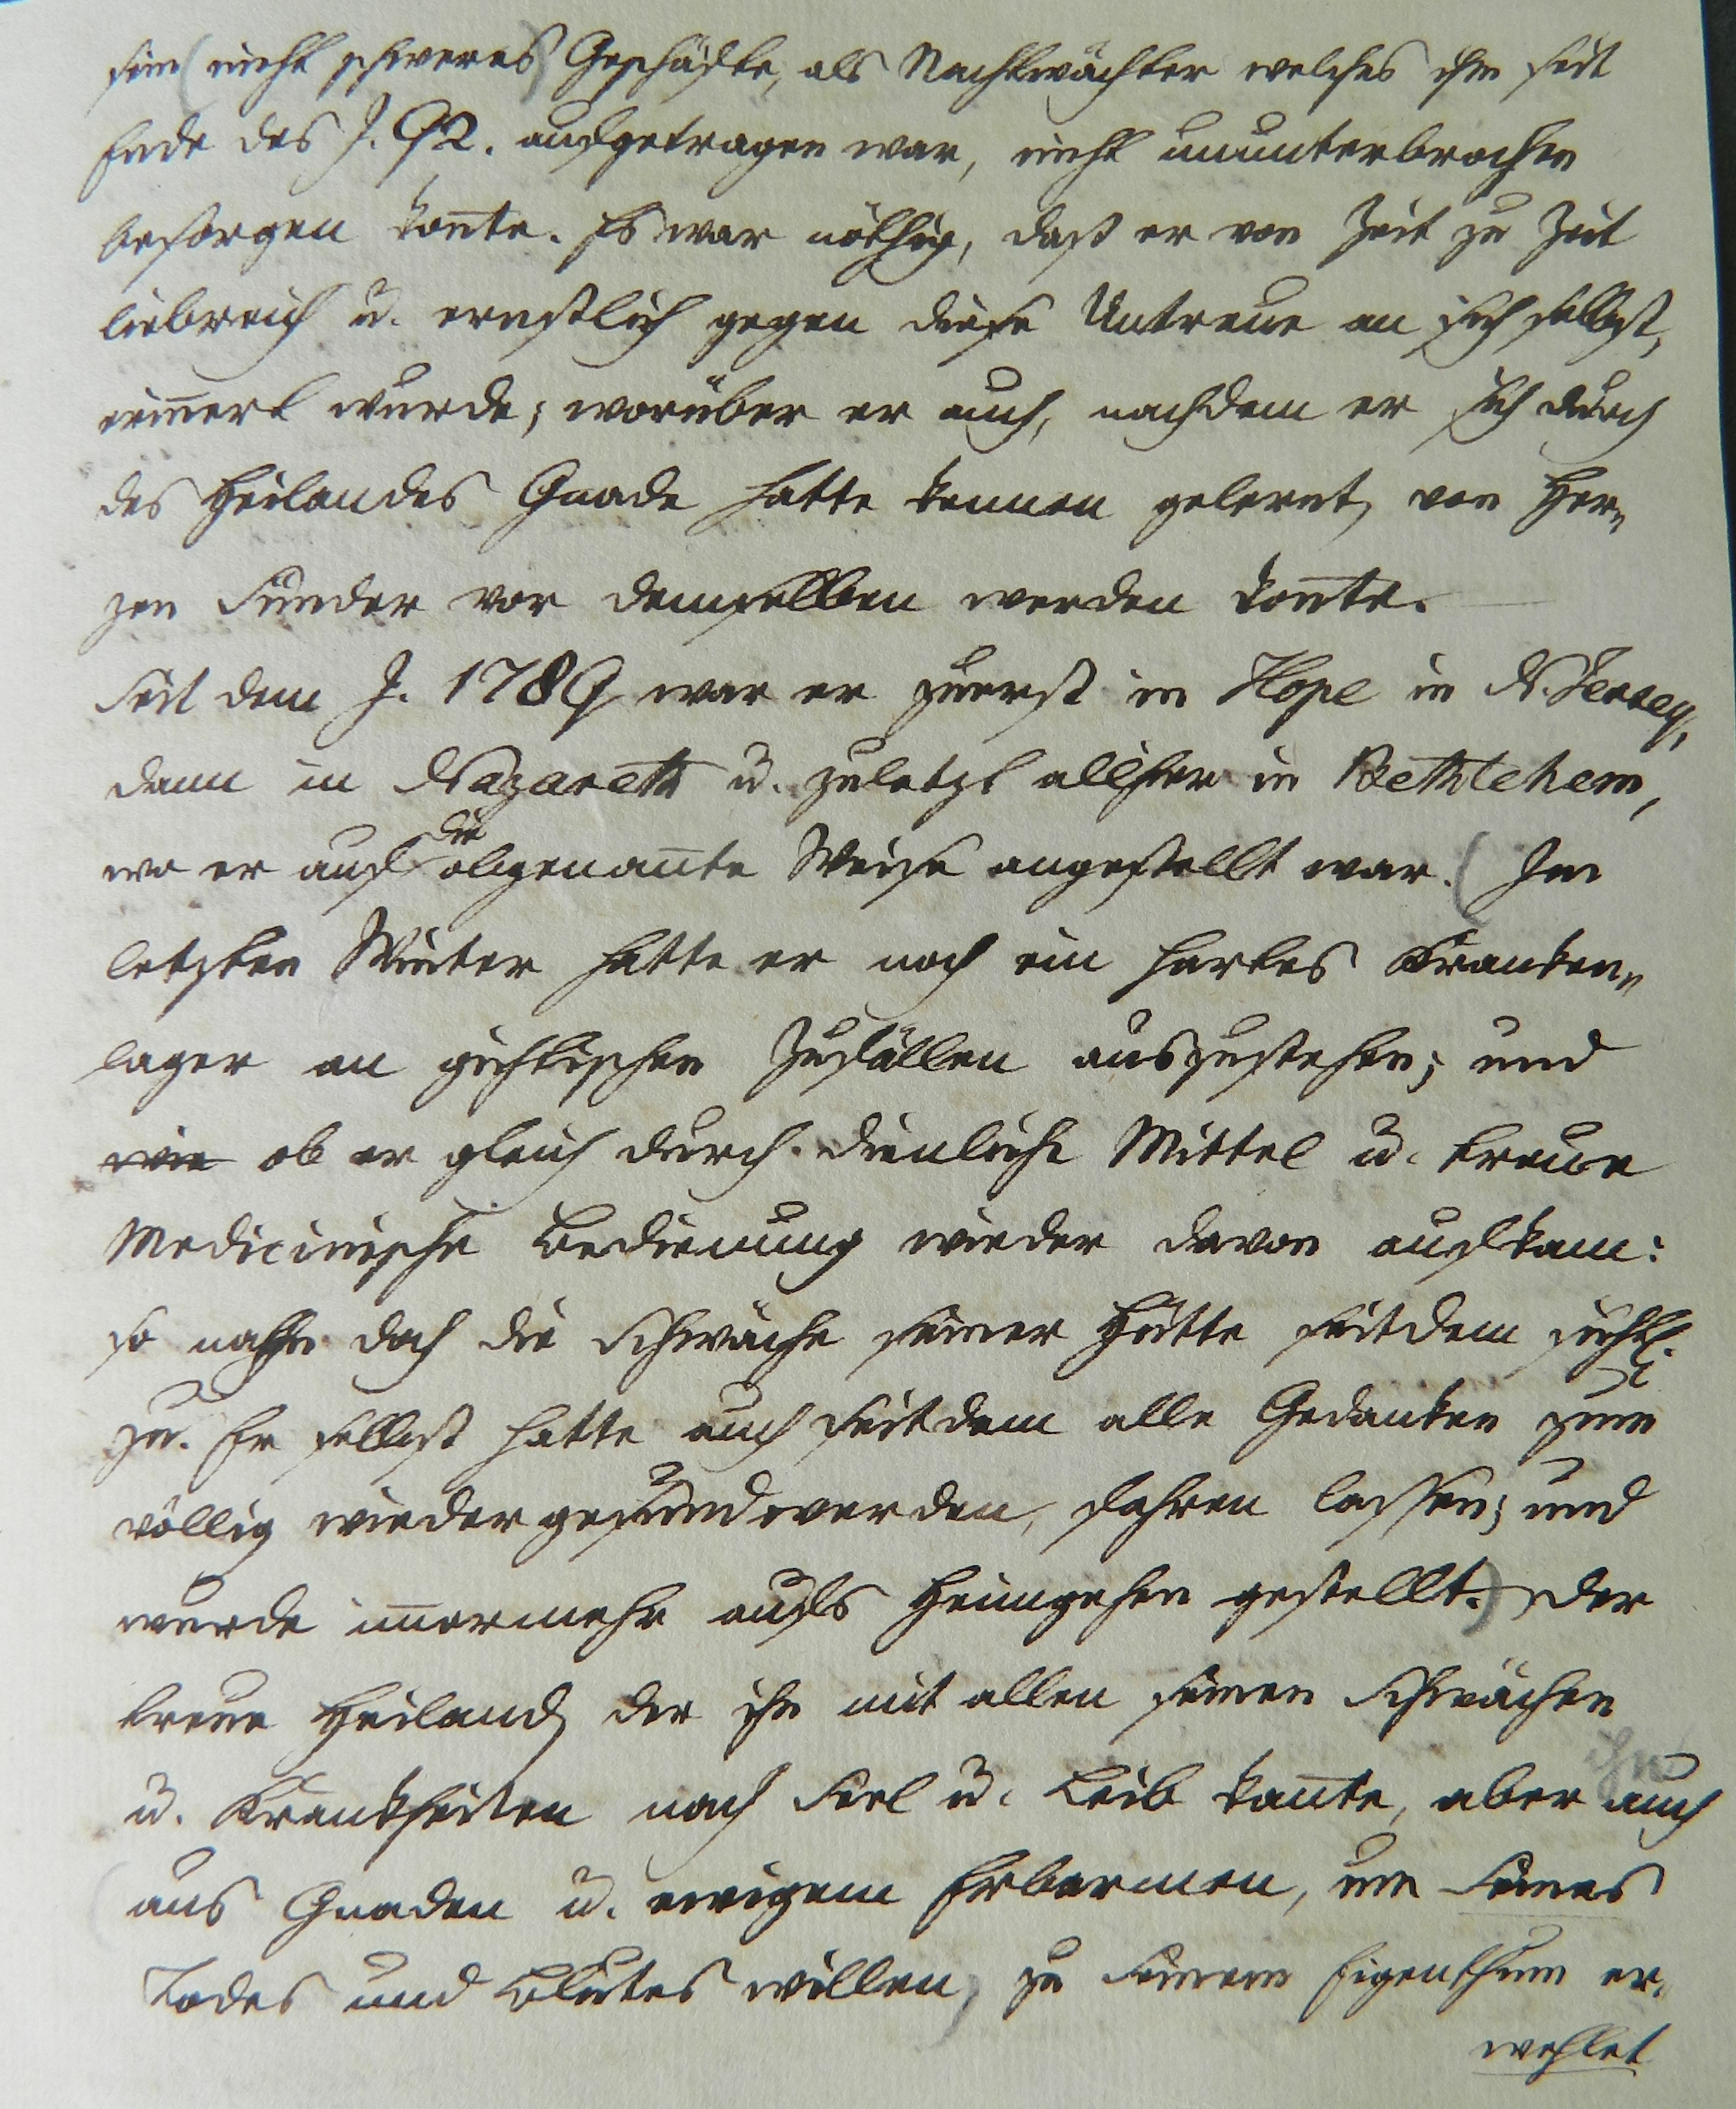 sein (nicht schweres) Geschäfte, als Nachtwächter welches ihm seit
Ende des J. 92. aufgetragen war, nicht ununterbrochen
besorgen kon̅te. Es war nöthig, daß er von Zeit zu Zeit
liebreich u. ernstlich gegen diese Untreue an sich selbst,
erin̅ert wurde; worüber er auch, nachdem er sich durch
des Heilandes Gnade hatte kennen gelernt, von Her„
zen Sünder vor demselben werden kon̅te.
Seit dem J. 1789 war er zuerst in Hope in N. Jersey,
dann in Nazareth u. zuletzt allhier in Bethlehem,
die
wo er auf obgenan̅te Weise angestellt war. (Im
letzten Winter hatte er noch ein hartes Kranken„
lager an gichtischen Zufällen auszustehen; und
wie ob er gleich durch dienliche Mittel u. treue
Medicinische Bedienung wieder davon aufkam:
so nahm doch die Schwäche seiner Hütte seitdem sichtl.
zu. Er selbst hatte auch seitdem alle Gedanken zum
völlig wieder gesund werden, fahren lassen; und
wurde im̅ermehr aufs Heimgehen gestellt.) Der
treue Heiland, der ihn mit allen seinen Schwächen
ihn
u. Krankheiten nach Seel u. Leib kan̅te, aber auch
(aus Gnaden u. ewigem Erbarmen, um Seines
Todes und Blutes willen) zu Seinem Eigenthum er„
wehlet